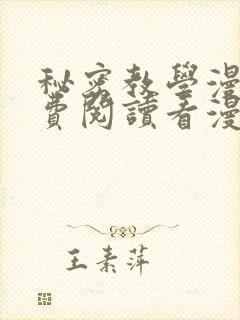 秘密教學漫
費閱讀看漫
王素萍